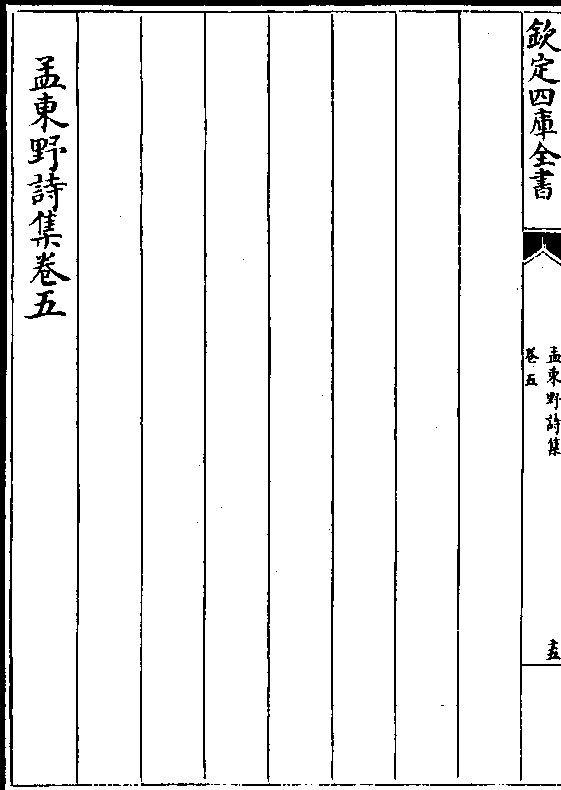 欽定四庫全書
孟東野詩集
卷五
孟東野詩集卷五